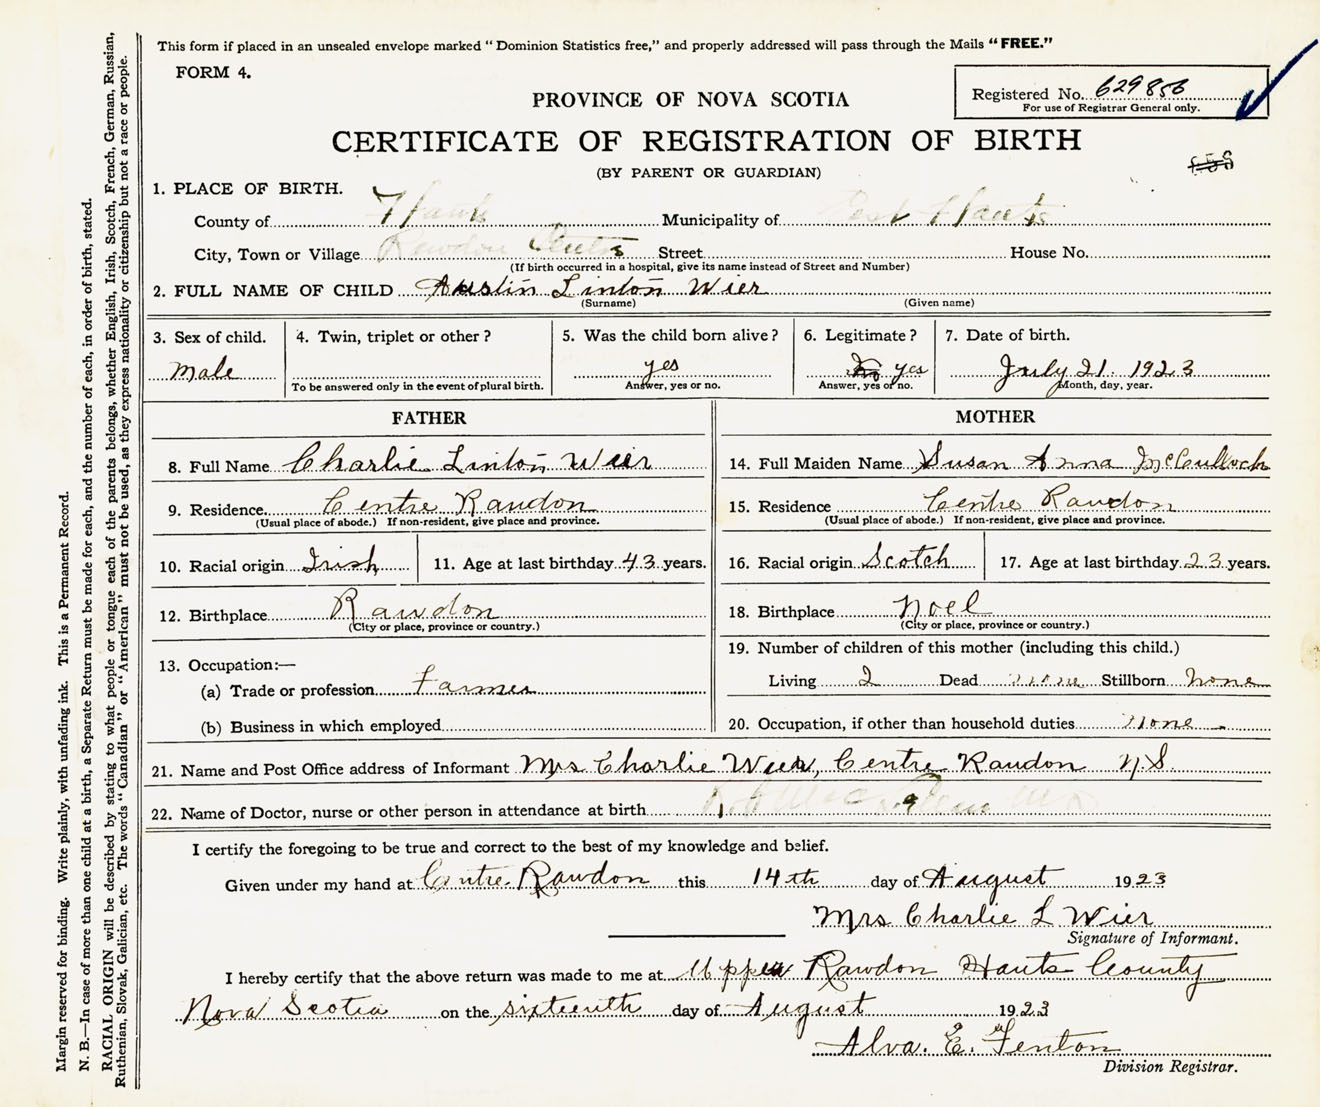 This form if placed in an unsealed envelope marked "Dominion Statistics free," and properly addressed will pass through the Mails "FREE."
FORM 4.
Registered No. 629856
For use of Registrar General only.
PROVINCE OF NOVA SCOTIA
CERTIFICATE OF REGISTRATION OF BIRTH
(BY PARENT OR GUARDIAN)
1. PLACE OF BIRTH.
County of Hants Municipality of East Hants
City, Town or Village Rawdon Centre Street House No.
(If birth occurred in a hospital, give its name instead of Street and Number)
2. FULL NAME OF CHILD Austin Linton Wier
(Surname) (Given name)
3. Sex of child. 4. Twin, triplet or other? 5. Was the child born alive? 6. Legitimate? 7. Date of birth.
Male yes yes July 21 1923
To be answered only in the event of plural birth. Answer, yes or no. Answer, yes or no. Month, day, year.
FATHER MOTHER
8. Full Name Charlie Linton Wier 14. Full Maiden Name Susan Anna McCulloch
9. Residence Centre Rawdon 15. Residence Centre Rawdon
(Usual place of abode.) If non-resident, give place and province. (Usual place of abode.) If non-resident, give place and province.
10. Racial origin Irish 11. Age at last birthday 43 years. 16. Racial origin Scotch 17. Age at last birthday 23 years.
12. Birthplace Rawdon 18. Birthplace Noel
(City or place, province or country.) (City or place, province or country.)
13. Occupation:— 19. Number of children of this mother (including this child.)
(a) Trade or profession Farmer Living 2 Dead none Stillborn None
(b) Business in which employed 20. Occupation, if other than household duties None
21. Name and Post Office address of Informant Mrs Charlie Wier, Centre Rawdon N.S.
22. Name of Doctor, nurse or other person in attendance at birth
I certify the foregoing to be true and correct to the best of my knowledge and belief.
Given under my hand at Centre Rawdon this 14th day of August 1923
Mrs Charlie L Wier
Signature of Informant.
I hereby certify that the above return was made to me at Upper Rawdon Hants County
Nova Scotia on the sixteenth day of August 1923
Alva. E. Fenton
Division Registrar.
Margin reserved for binding. Write plainly, with unfading ink. This is a Permanent Record.
N. B.—In case of more than one child at a birth, a Separate Return must be made for each, and the number of each, in order of birth, stated.
RACIAL ORIGIN will be described by stating to what people or tongue each of the parents belongs, whether English, Irish, Scotch, French, German, Russian,
Ruthenian, Slovak, Galician, etc. The words "Canadian" or "American" must not be used, as they express nationality or citizenship but not a race or people.